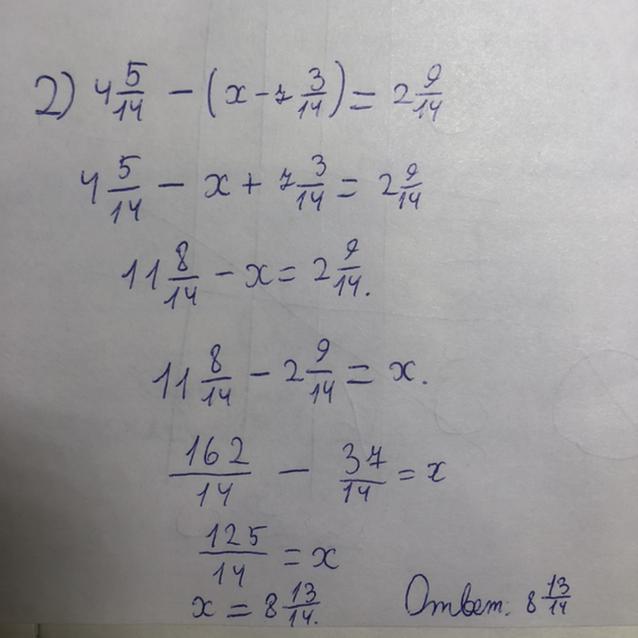 2) 4 5/14 − (x − 7 3/14) = 2 9/14
4 5/14 − x + 7 3/14 = 2 9/14
11 8/14 − x = 2 9/14.
11 8/14 − 2 9/14 = x.
162/14 − 37/14 = x
125/14 = x
x = 8 13/14. Ответ: 8 13/14